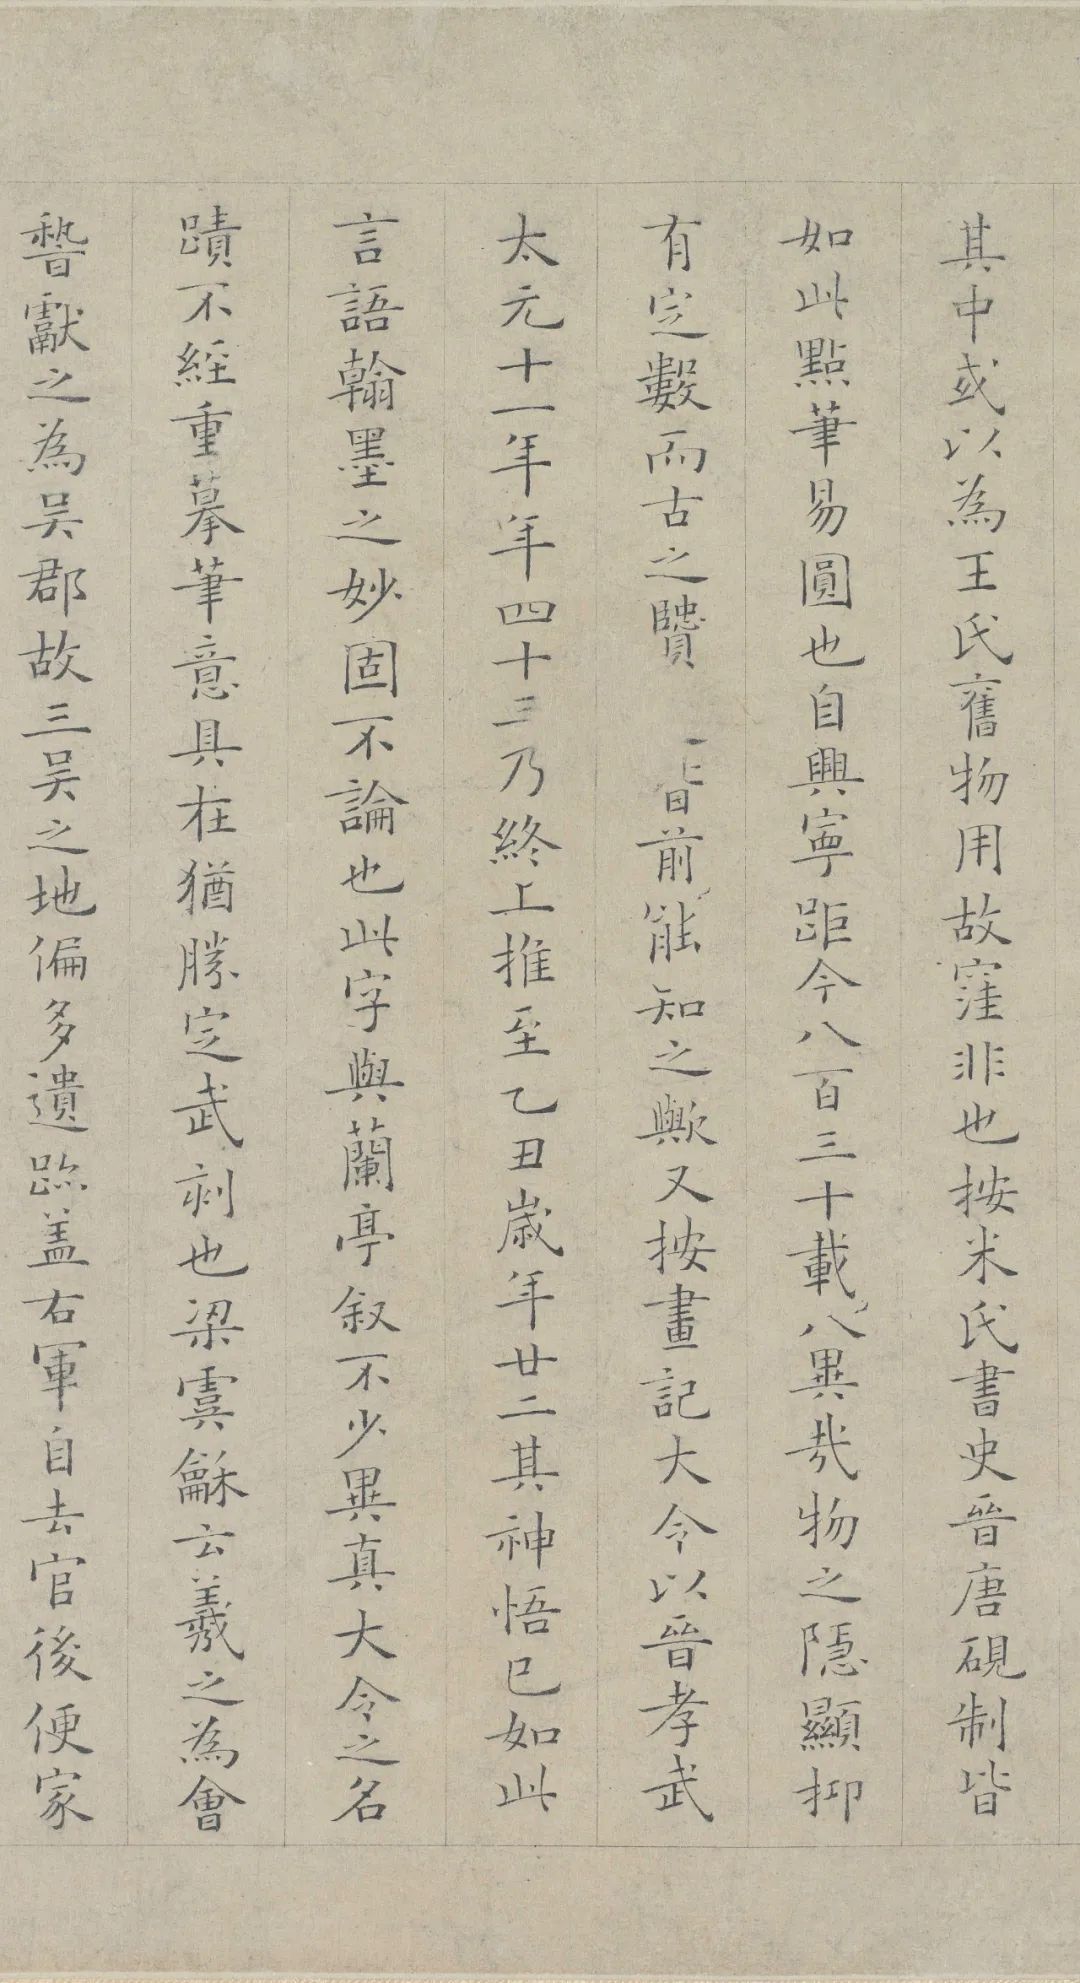 其中或以為王氏舊物用故窪非也按米氏書史晉唐硯制皆
如此點筆易圓也自興寧距今八百三十載八異哉物之隱顯抑
有定數而古之贒前能知之歟又按畫記大令以晉孝武
太元十一年年四十三乃終上推至乙丑歲年廿二其神悟已如此
言語翰墨之妙固不論也此字與蘭亭叙不少異真大令之名
蹟不經重摹筆意具在猶勝定武刻也梁虞龢云羲之為會
稽獻之為吳郡故三吳之地偏多遺跡盖右軍自去官後便家